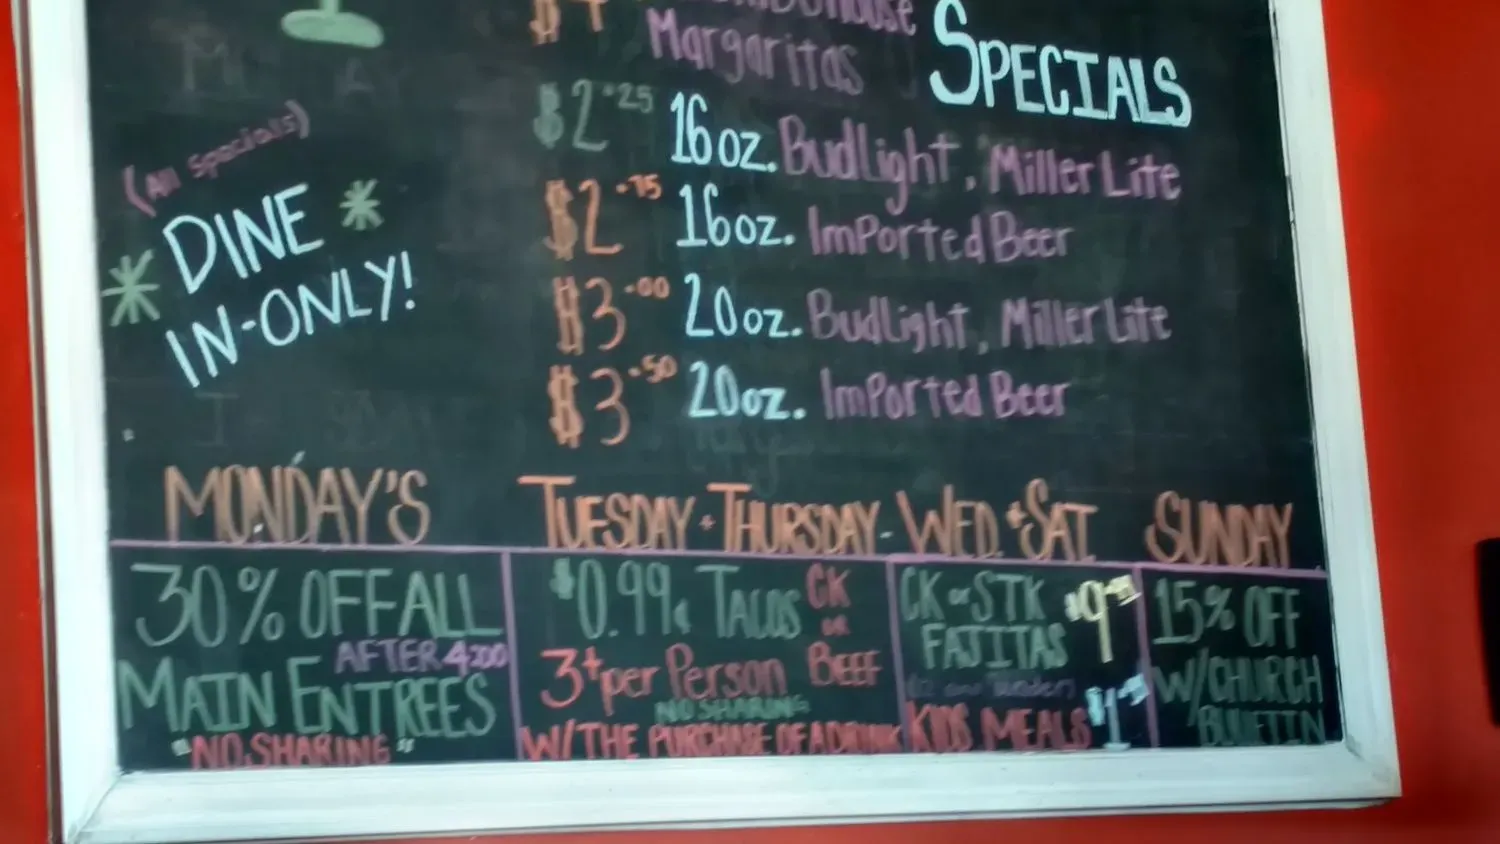 $4 House
Margaritas
SPECIALS
(All Specials)
DINE
IN-ONLY!
$2.25 16oz. BudLight, Miller Lite
$2.75 16oz. Imported Beer
$3.00 20oz. BudLight, Miller Lite
$3.50 20oz. Imported Beer
MONDAY'S
30% OFF ALL
AFTER 4:00
MAIN ENTREES
"NO SHARING"
TUESDAY + THURSDAY -
$0.99¢ TACOS CK
OR
BEEF
3+ per Person
NO SHARING
W/THE PURCHASE OF A DRINK
WED. + SAT.
CK or STK
FAJITAS
KIDS MEALS
SUNDAY
15% OFF
W/CHURCH
BULLETIN